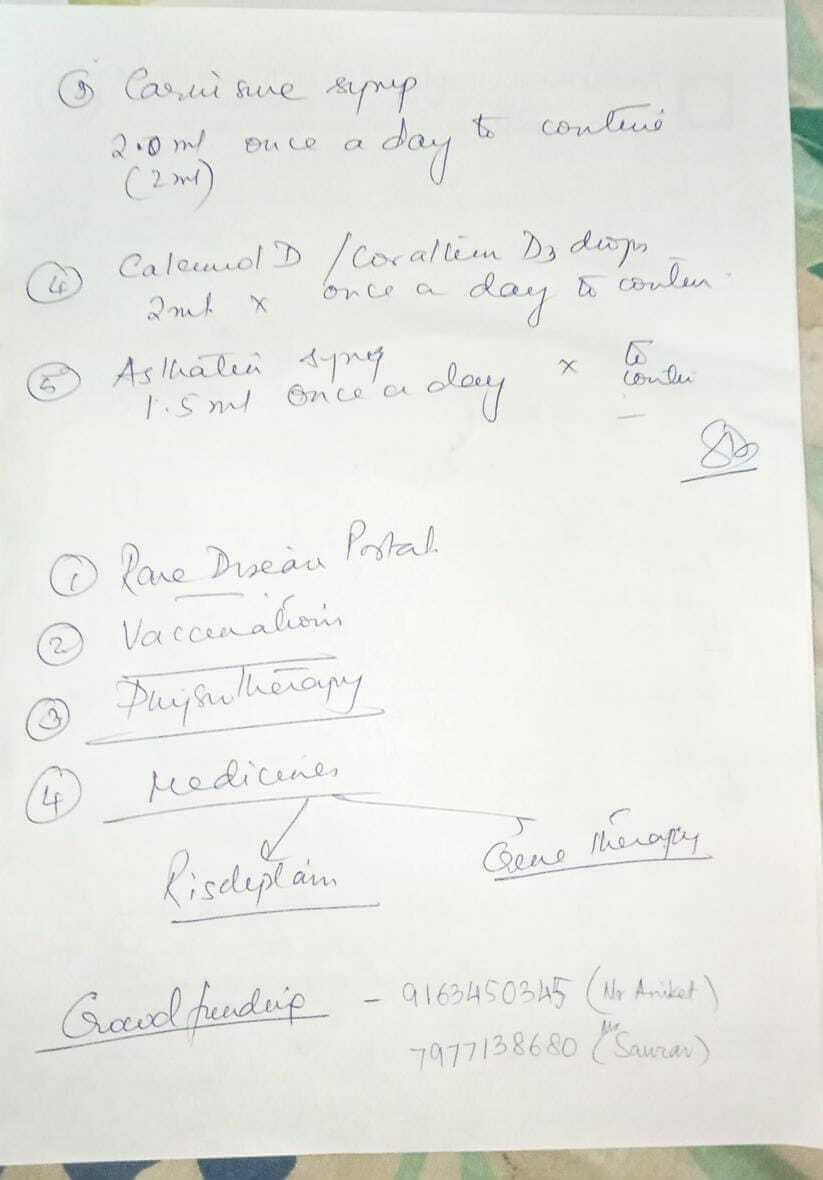 ③ Carnisure syrup
2.0ml once a day to continue
(2ml)
④ Calcimol D / Corallium D3 drops
2ml x once a day to contin
⑤ Asthalin syrup
1.5ml once a day x to contin
① Rare Disease Portal
② Vaccinations
③ Physiotherapy
④ Medicines
Risdiplam Gene Therapy
Crowd funding - 9163450345 (Mr Aniket)
7977138680 (Mr Saurav)